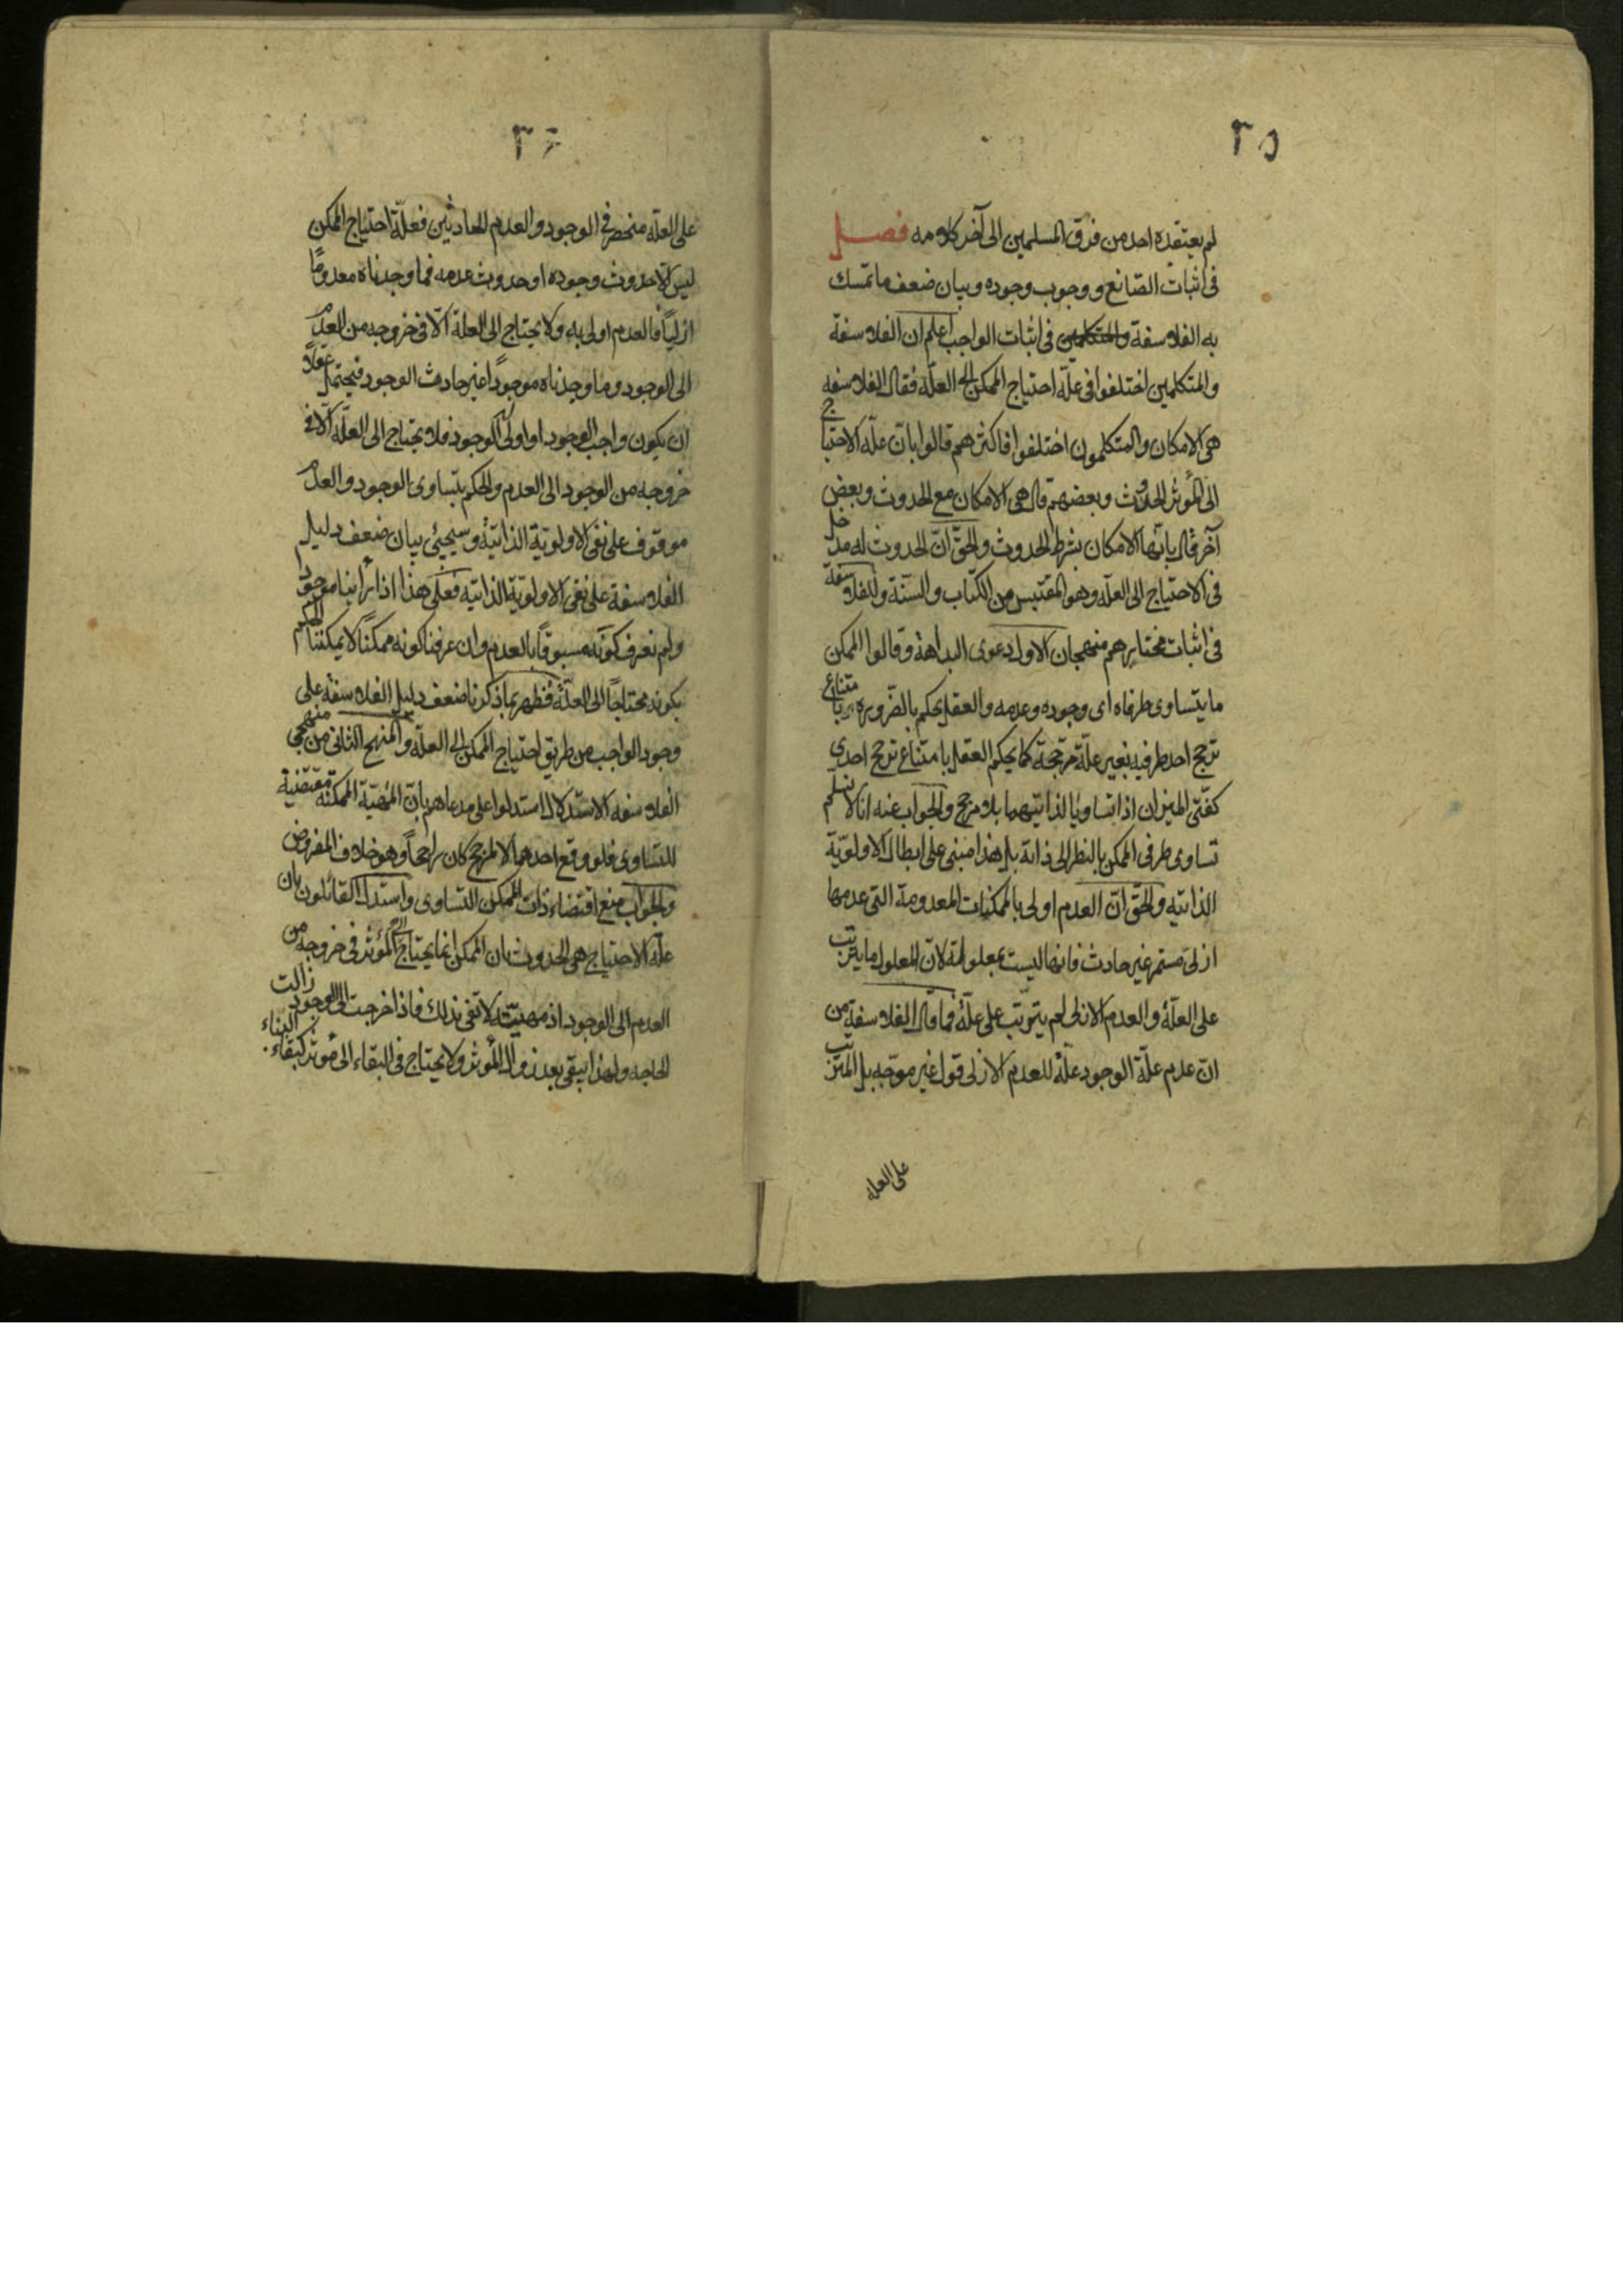 ٣٥
لم يعتقده احد من فرق المسلمين الى آخر كلامه فصل
فى اثبات الصانع و وجوب وجوده وبيان ضعف ما تمسك
به الفلاسفة والمتكلمين فى اثبات الواجب اعلم ان الفلاسفة
والمتكلمين اختلفوا فى علّة احتياج الممكن الى العلّة فقال الفلاسفه
هى الامكان والمتكلمون اختلفوا فاكثرهم قالوا بانّ علّة الاحتياج
الى المؤثر الحدوث وبعضهم قال هى الامكان مع الحدوث وبعض
آخر قال بانّها الامكان بشرط الحدوث والحقّ انّ الحدوث له مدخل
فى الاحتياج الى العلّه وهو المقتبس من الكتاب والسنّة وللفلاسفة
فى اثبات مختارهم منهجان الاول دعوى البداهة وقالوا الممكن
ما يتساوى طرفاه اى وجوده وعدمه والعقل يحكم بالضّرورة بامتناع
ترجح احد طرفيه بغير علّة مرجّحة كما يحكم العقل بامتناع ترجح احدى
كفّتى الميزان اذا تساويا لذاتيهما بلا مرجح والجواب عنه انا لا نسلم
تساوى طرفى الممكن بالنظر الى ذاته بل هذا مبنى على ابطال الاولويّة
الذاتيه والحقّ انّ العدم اولى بالممكنات المعدومة التى عدمها
ازلى مستمر غير حادث فانها ليست بمعلولة لانّ المعلول ما يترتب
على العلّة والعدم الازلى لم يترتب على علّة فما قال الفلاسفة من
انّ عدم علّة الوجود علّة للعدم الازلى قول غير موجّه بل المترتب
على العله
٣٦
على العلّه منحصر فى الوجود والعدم الحادثين فعلّة احتياج الممكن
ليس الّا حدوث وجوده او حدوث عدمه فما وجدناه معدومًا
ازليًا فالعدم اولى به ولا يحتاج الى العلة الّا فى خروجه من العدم
الى الوجود وما وجدناه موجودًا غير حادث الوجود فيحتمل عقلًا
ان يكون واجب الوجود او اولى الوجود فلا يحتاج الى العلّه الّا فى
خروجه من الوجود الى العدم والحكم بتساوى الوجود والعدم
موقوف على نفى الاولويّة الذاتيّة وسيجيئ بيان ضعف دليل
الفلاسفة على نفى الاولويّة الذاتيه فعلى هذا اذا رأينا موجودا
ولم نعرف كونه مسبوقًا بالعدم وان عرفنا كونه ممكنًا لا يمكننا الحكم
بكونه محتاجًا الى العلّة فظهر بما ذكرنا ضعف دليل الفلاسفة على
وجود الواجب من طريق احتياج الممكن الى العلّه والمنهج الثانى من منهجى
الفلاسفه الاستدلال استدلوا على مدعاهم بانّ المهيّة الممكنة مقتضية
للتساوى فلو وقع احدهما لا لمرجح كان راجحاً وهو خلاف المفروض
والجواب منع اقتضاء ذات الممكن التساوى واستدل القائلون بان
علة الاحتياج هى الحدوث بان الممكن انما يحتاج الى المؤثر فى خروجه من
العدم الى الوجود اذ مهيّته لا تفى بذلك فاذا خرجت الى الوجود زالت
الحاجه ولهذا يبقى بعد زوال المؤثر ولا يحتاج فى البقاء الى مؤثر كبقاء البناء